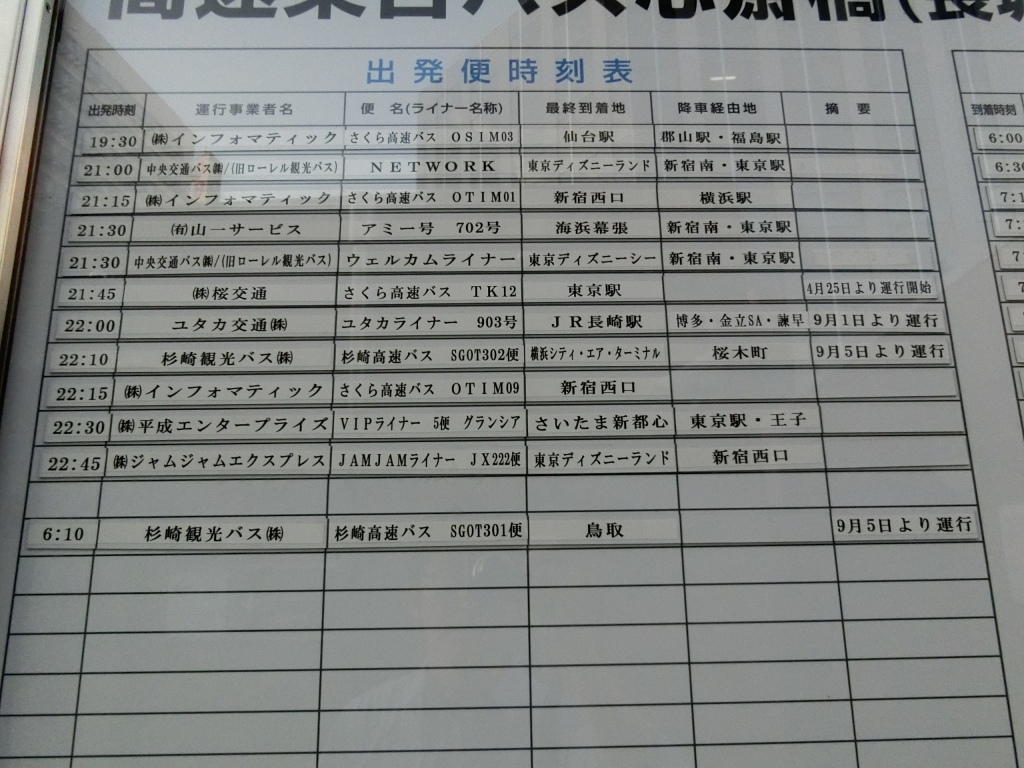 高速乗合バス心斎橋(長堀
出発便時刻表
出発時刻 運行事業者名 便 名(ライナー名称) 最終到着地 降車経由地 摘 要
19:30 ㈱インフォマティック さくら高速バス OSIM03 仙台駅 郡山駅・福島駅
21:00 中央交通バス㈱/(旧ローレル観光バス) NETWORK 東京ディズニーランド 新宿南・東京駅
21:15 ㈱インフォマティック さくら高速バス OTIM01 新宿西口 横浜駅
21:30 ㈲山一サービス アミー号 702号 海浜幕張 新宿南・東京駅
21:30 中央交通バス㈱/(旧ローレル観光バス) ウェルカムライナー 東京ディズニーシー 新宿南・東京駅
21:45 ㈱桜交通 さくら高速バス TK12 東京駅 4月25日より運行開始
22:00 ユタカ交通㈱ ユタカライナー 903号 JR長崎駅 博多・金立SA・諫早 9月1日より運行
22:10 杉崎観光バス㈱ 杉崎高速バス SGOT302便 横浜シティ・エア・ターミナル 桜木町 9月5日より運行
22:15 ㈱インフォマティック さくら高速バス OTIM09 新宿西口
22:30 ㈱平成エンタープライズ VIPライナー 5便 グランシア さいたま新都心 東京駅・王子
22:45 ㈱ジャムジャムエクスプレス JAMJAMライナー JX222便 東京ディズニーランド 新宿西口
6:10 杉崎観光バス㈱ 杉崎高速バス SGOT301便 鳥取 9月5日より運行
到着時刻
6:00
6:30
7:1
7:
7